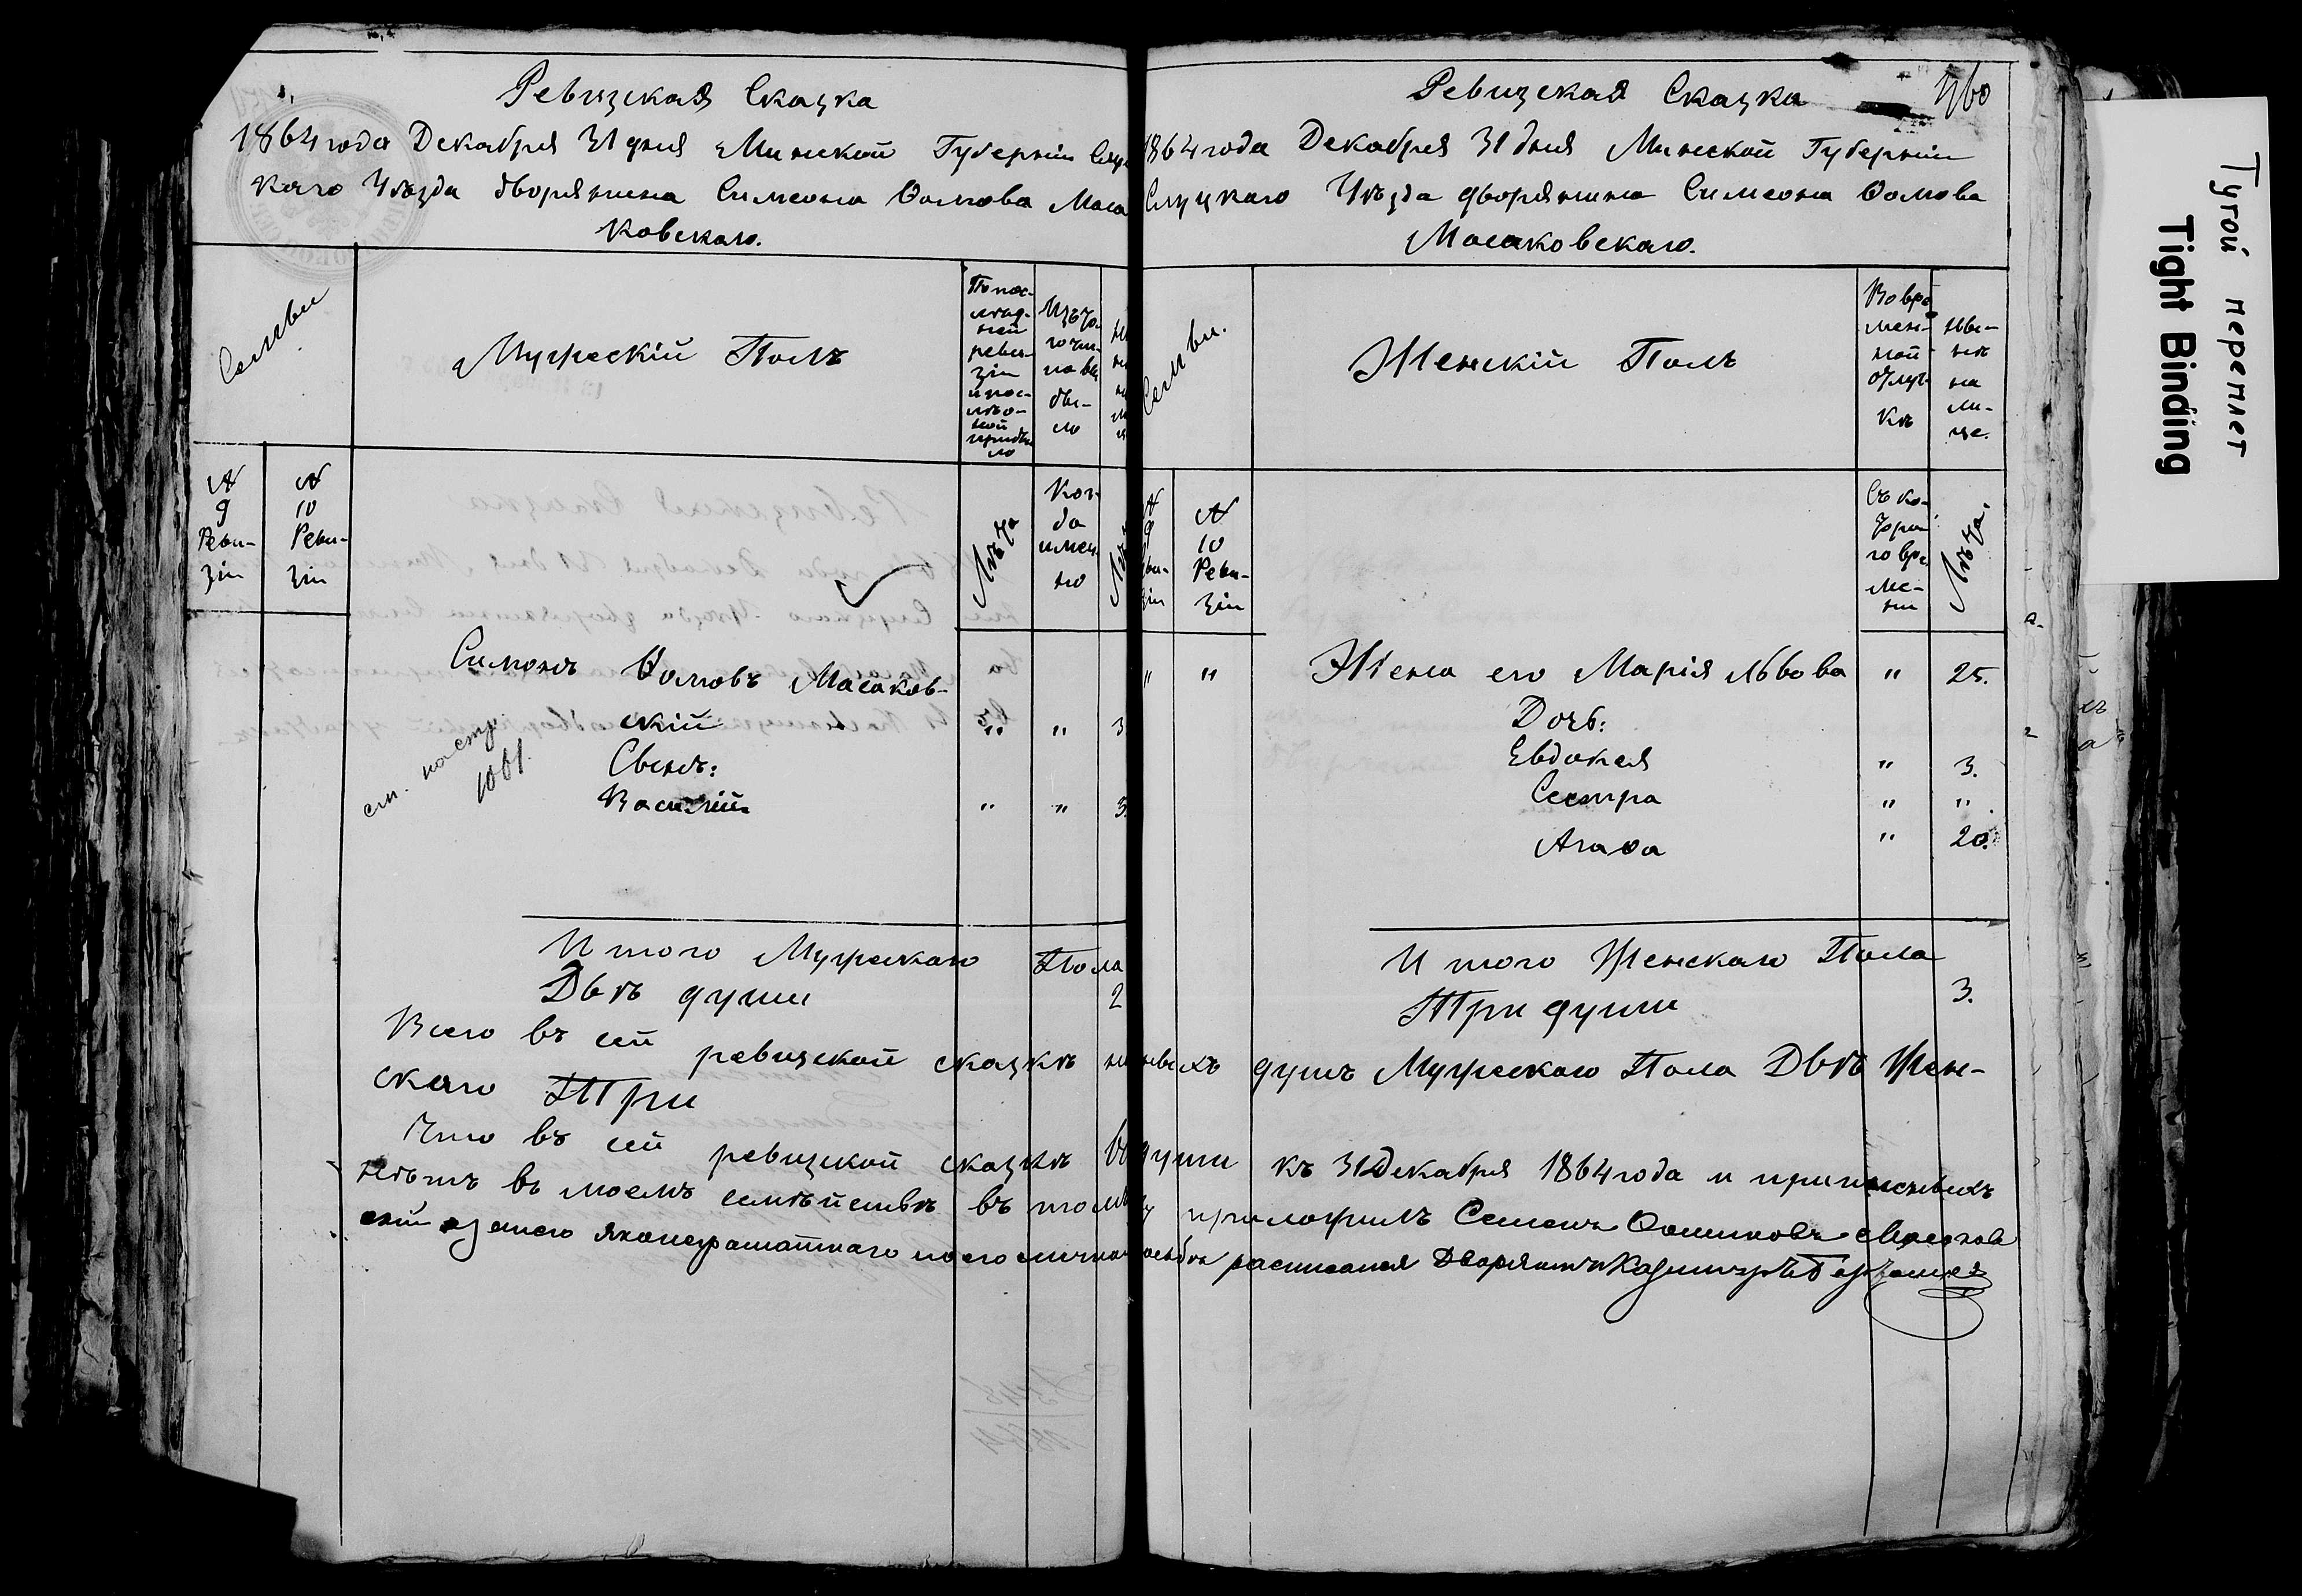 Ревизская Сказка
1864 года Декабря 31 дня Минской Губерніи Слуц
каго Уѣзда дворянина Симеона Ѳомова Маса
ковскаго.
Семьи
Мужескій Полъ
По пос-
лѣд-
ней
реви-
зіи
Изъ то-
го чи-
сла вы
бы-
ло
№
9
Реви-
зіи
№
10
Реви-
зіи
Лѣта
Ког-
да
имен-
но
Симонъ Ѳомовъ Масаков-
скій " " 3
Сынъ:
Василій " " 3.
см. на стр.
1001.
Итого Мужескаго Пола
Двѣ души 2
Ревизская Сказка
1864 года Декабря 31 дня Минской Губерніи
Слуцкаго Уѣзда дворянина Симеона Ѳомова
Масаковскаго.
Семьи.
Женскій Полъ
Во вре
мен-
ной
отлуч-
кѣ
Ны-
нѣ
на
ли-
це.
№
10
Реви-
зіи
Съ ко-
тора-
го вре
ме-
ни
Лѣта.
" " Жена его Марія Львова " 25.
Дочь:
Евдокея " 3.
Сестра " "
Агаѳа " 20.
Итого Женскаго Пола
Три души 3.
Всего въ сей ревизской сказкѣ душъ Мужескаго Пола Двѣ Жен-
скаго Три
Что въ сей ревизской сказкѣ души къ 31 Декабря 1864 года и
нѣтъ въ моемъ семѣйствѣ въ томъ приложилъ Семенъ
расписался Дворянинъ
Тугой переплет
Tight Binding